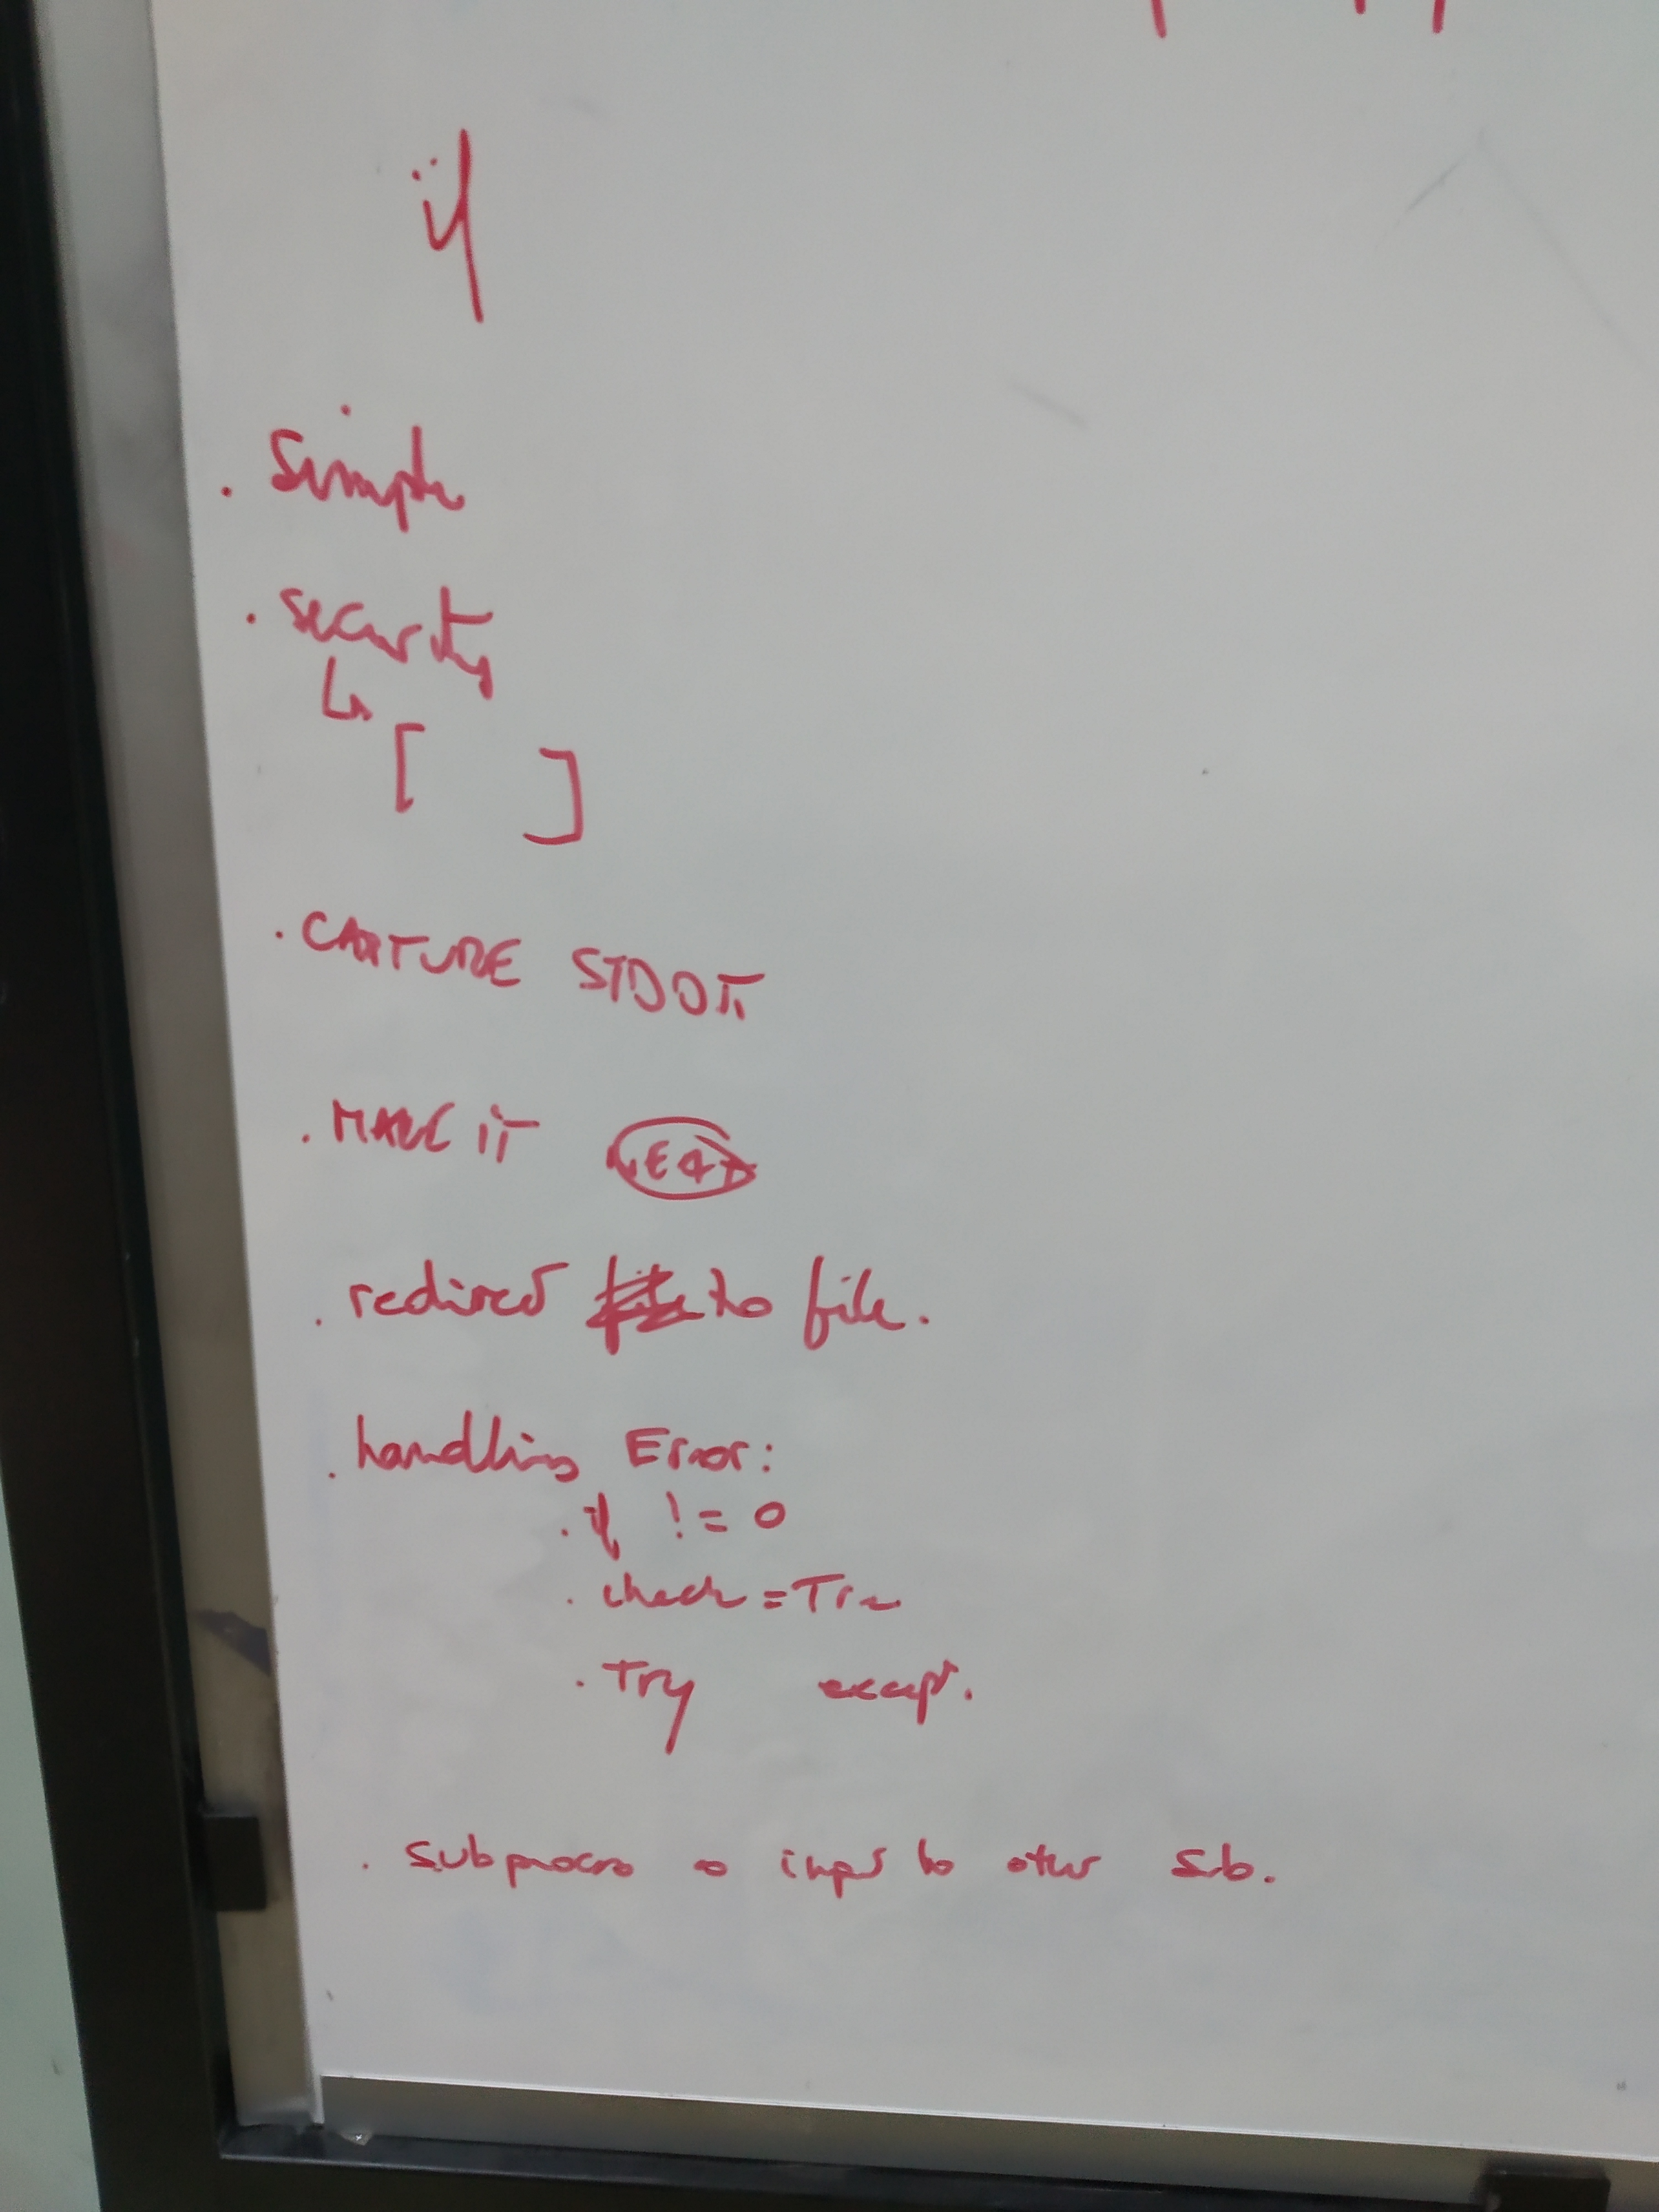 if
. Simple
. security
↳
[ ]
. CAPTURE STDOUT
. MAKE IT
. redirect file to file.
. handling Error:
. if != 0
. check = True
. Try except.
. subprocess input to other sub.